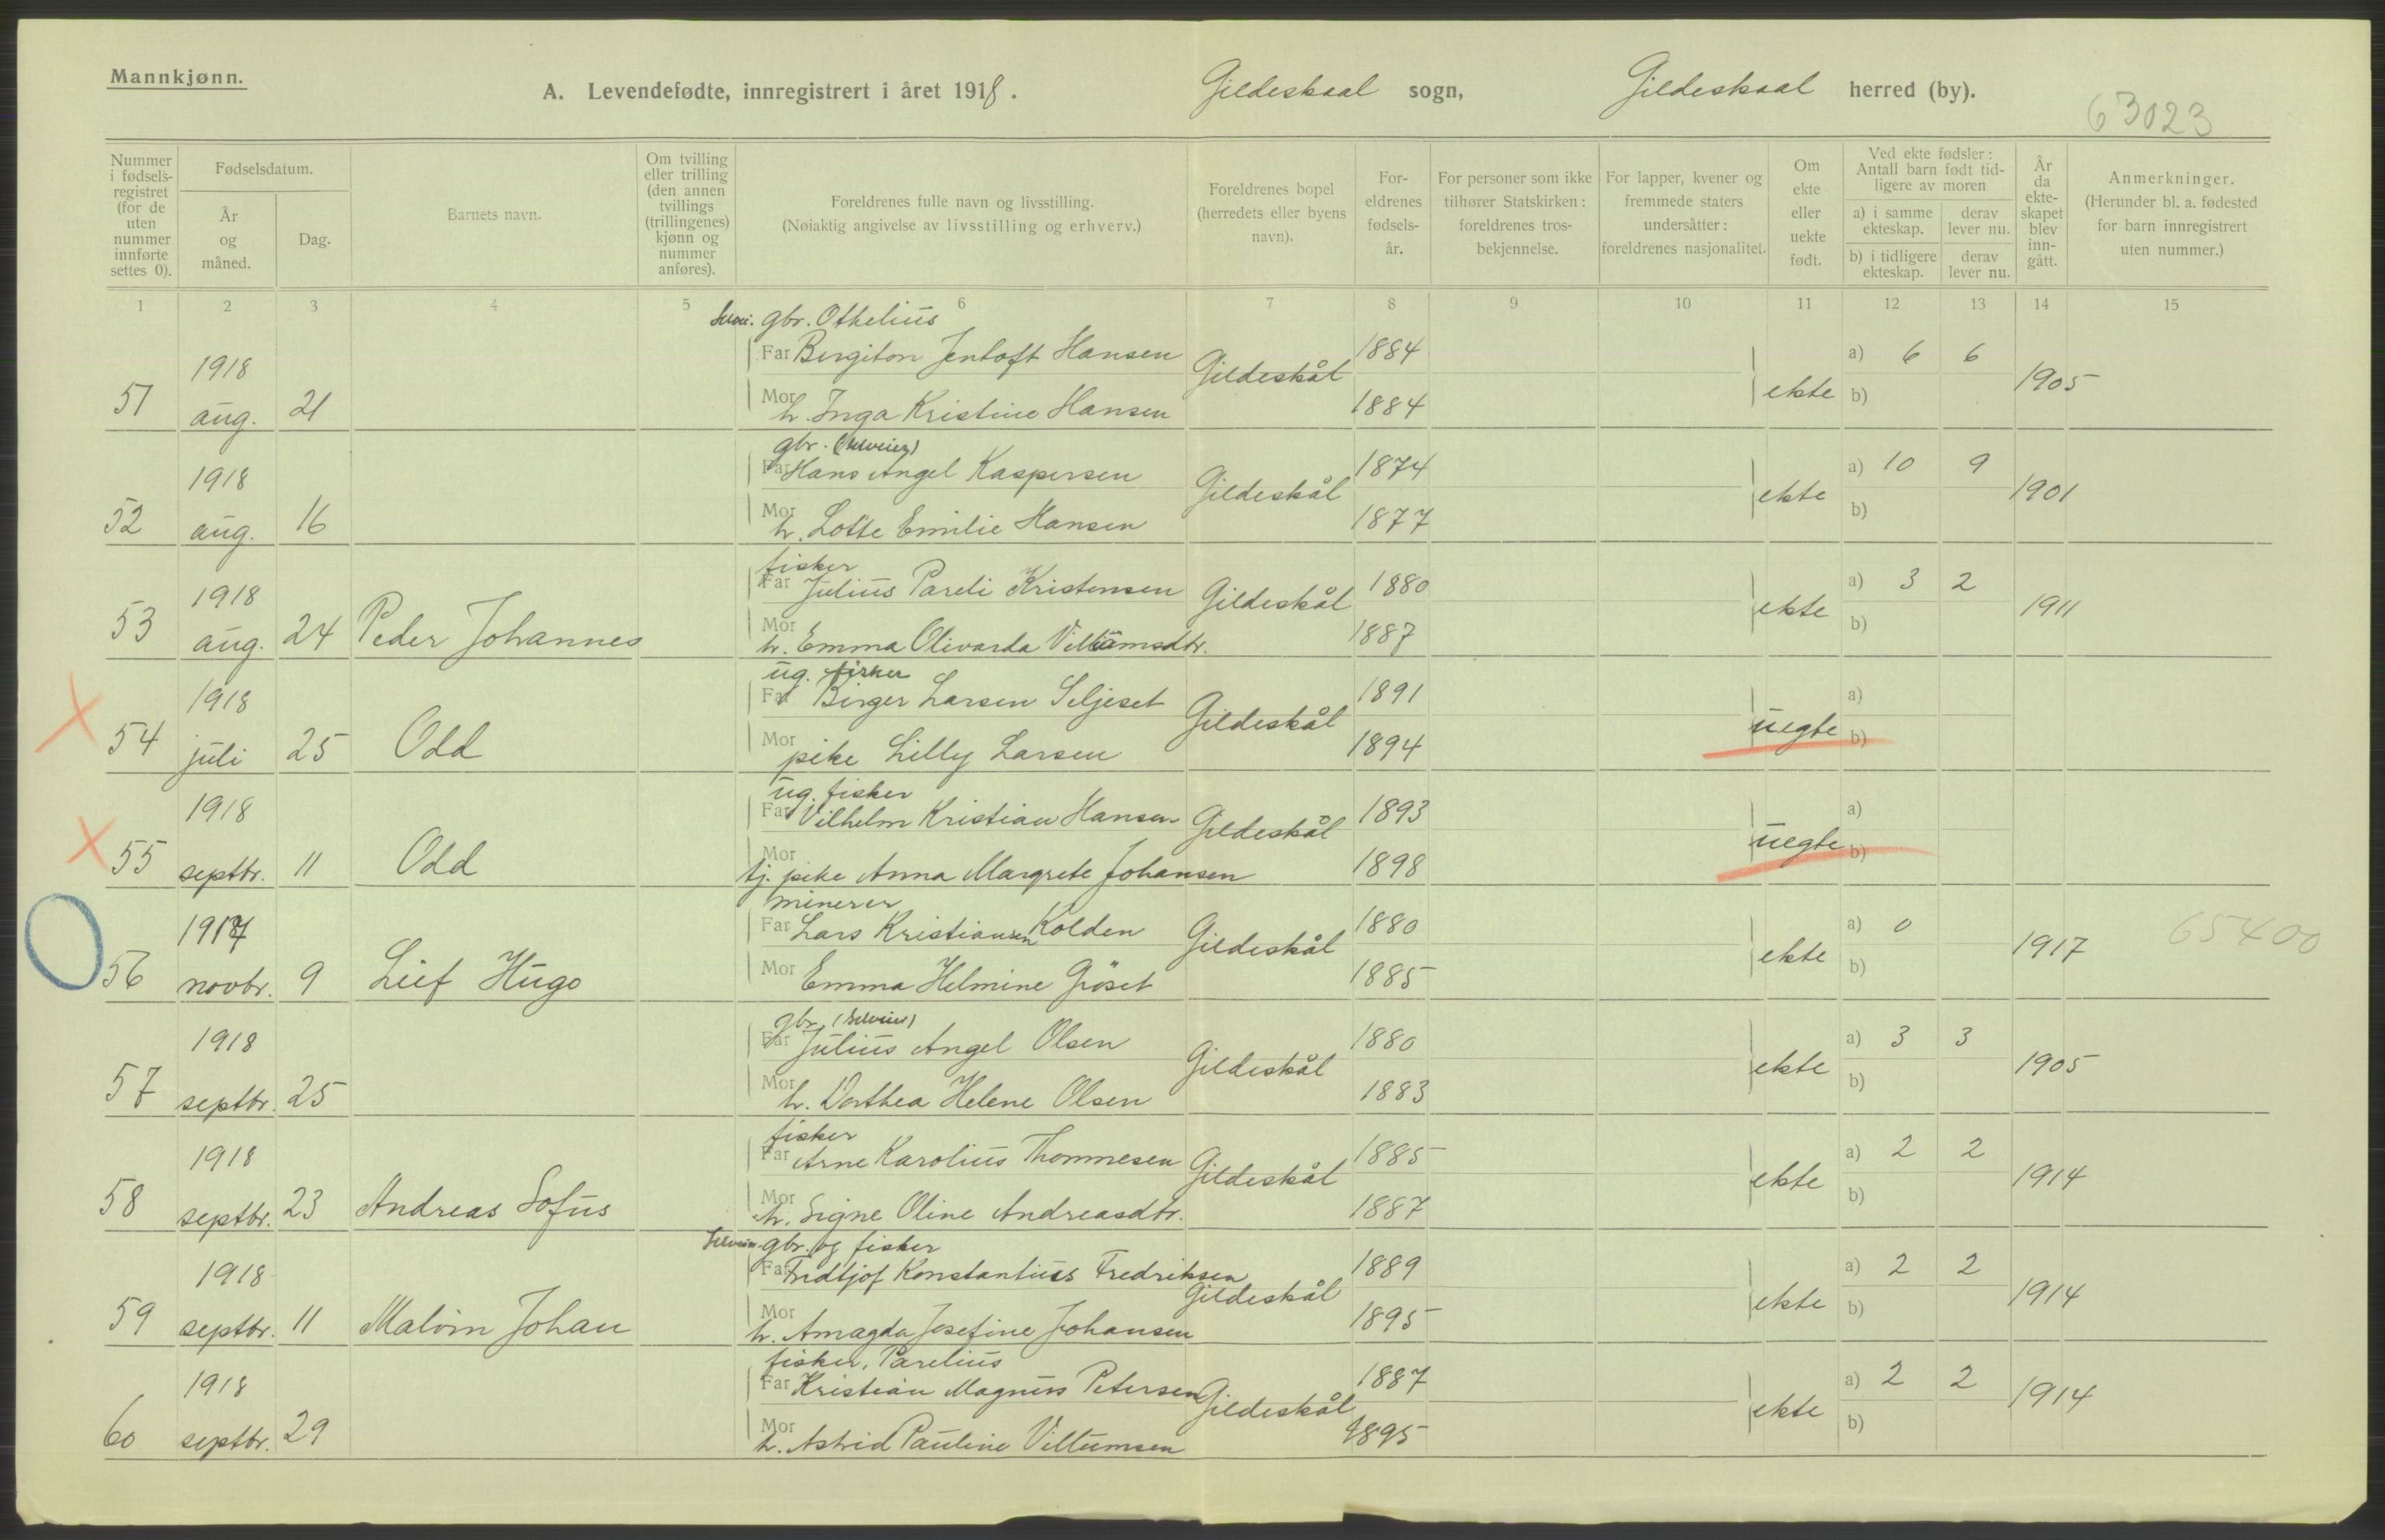 Mannkjønn.
A. Levendefødte, innregistrert i året 1918. Gildeskaal sogn, Gildeskaal herred (by).
63023
Nummer i fødsels-registret (for de uten nummer innførte settes 0).
Fødselsdatum.
År og måned.
Dag.
Barnets navn.
Om tvilling eller trilling (den annen tvillings (trillingenes) kjønn og nummer anføres).
Foreldrenes fulle navn og livsstilling.
(Nøiaktig angivelse av livsstilling og erhverv.)
Foreldrenes bopel (herredets eller byens navn).
For-eldrenes fødsels-år.
For personer som ikke tilhører Statskirken: foreldrenes tros-bekjennelse.
For lapper, kvener og fremmede staters undersåtter: foreldrenes nasjonalitet.
Om ekte eller uekte født.
Ved ekte fødsler: Antall barn født tid-ligere av moren
a) i samme ekteskap.
derav lever nu.
b) i tidligere ekteskap.
derav lever nu.
År da ekte-skapet blev inn-gått.
Anmerkninger.
(Herunder bl. a. fødested for barn innregistrert uten nummer.)
1 2 3 4 5 6 7 8 9 10 11 12 13 14 15
gbr. Othelius
1918 Far Birgiton Jentoft Hansen 1884 a) 6 6
51 aug. 21 Gildeskål ekte b) 1905
Mor h. Inga Kristine Hansen 1884
gbr. (selveier)
1918 Far Hans Angel Kaspersen 1874 a) 10 9
52 aug. 16 Gildeskål ekte b) 1901
Mor h. Lotte Emilie Hansen 1877
fisker
1918 Far Julius Pareli Kristensen 1880 a) 3 2
53 aug. 24 Peder Johannes Gildeskål ekte b) 1911
Mor h. Emma Olivarda 1887
ug. fisker
1918 Far Birger Larsen Seljeset 1891 a)
54 juli 25 Odd Gildeskål uegte b)
Mor pike Lilly Larsen 1894
ug. fisker
1918 Far Vilhelm Kristian Hansen 1893 a)
55 septbr. 11 Odd Gildeskål uegte b)
Mor tj. pike Anna Margrete Johansen 1898
minerer
1917 Far Lars Kristiansen Kolden 1880 a) 0
56 novbr. 9 Leif Hugo Gildeskål ekte b) 1917 65400
Mor Emma Helmine Grøset 1885
gbr. (selveier)
1918 Far Julius Angel Olsen 1880 a) 3 3
57 septbr. 25 Gildeskål ekte b) 1905
Mor h. Dorthea Helene Olsen 1883
fisker
1918 Far Arne Karolius Thommesen 1885 a) 2 2
58 septbr. 23 Andreas Sofus Gildeskål ekte b) 1914
Mor h. Signe Oline Andreasdtr. 1887
Selveier gbr. og fisker
1918 Far Fridtjof Konstantius Fredriksen 1889 a) 2 2
59 septbr. 11 Malvin Johan Gildeskål ekte b) 1914
Mor h. Amagda Josefine Johansen 1895
fisker, Parelius
1918 Far Kristian Magnus Petersen 1887 a) 2 2
60 septbr. 29 Gildeskål ekte b) 1914
Mor h. Astrid Pauline Villumsen 1895